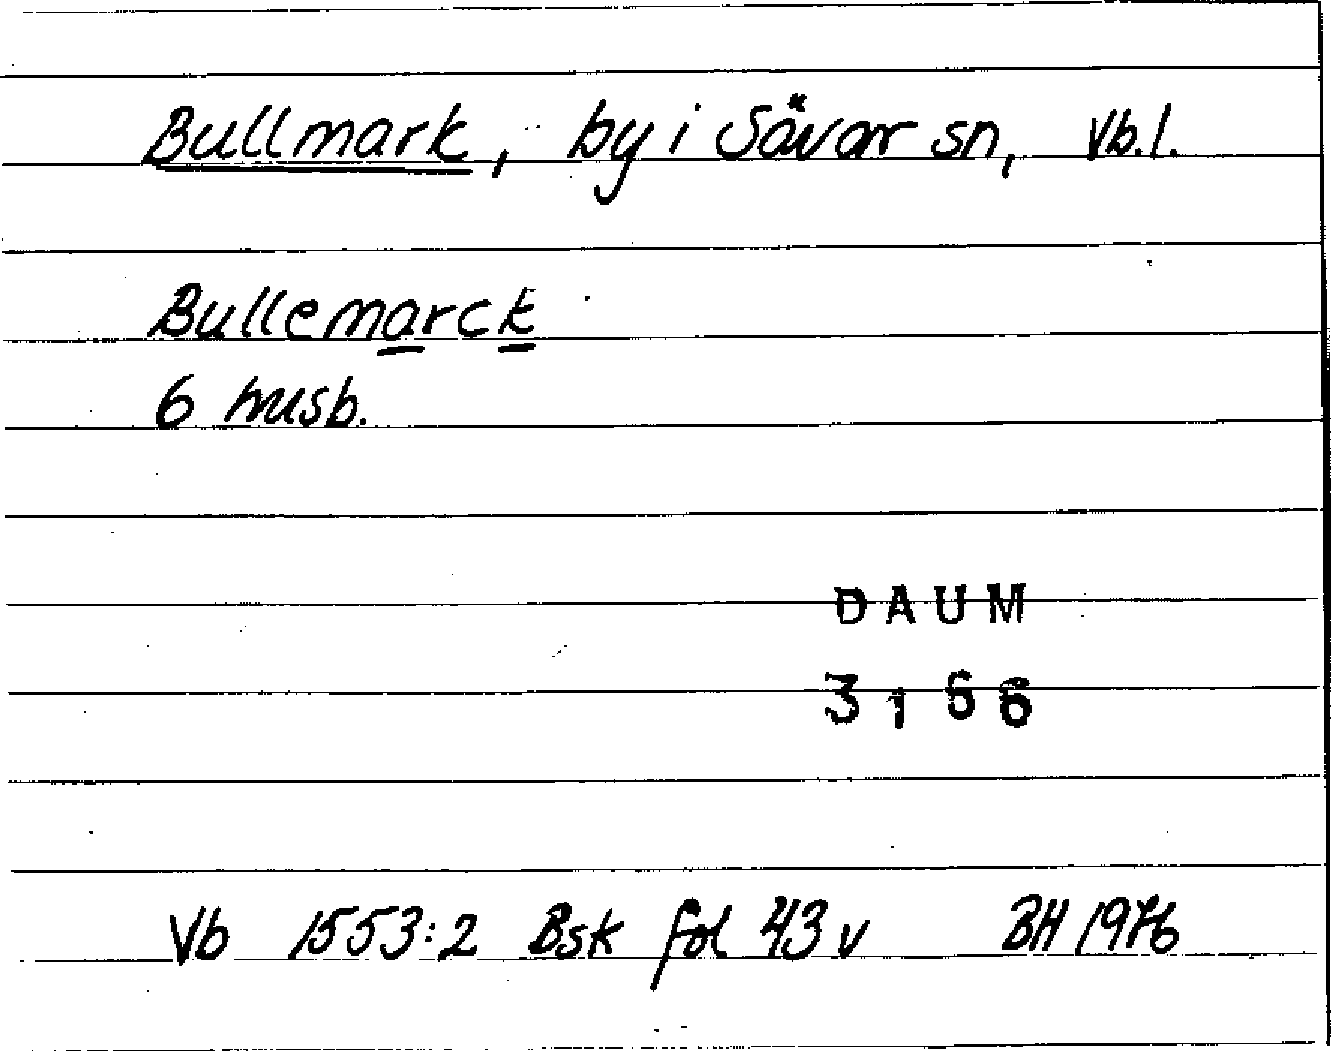 Bullmark, by i Sävar sn, Vb.l.
Bullemarck
6 husb.
DAUM
3166
Vb 1553:2 Bsk fol 43 v BH 1976